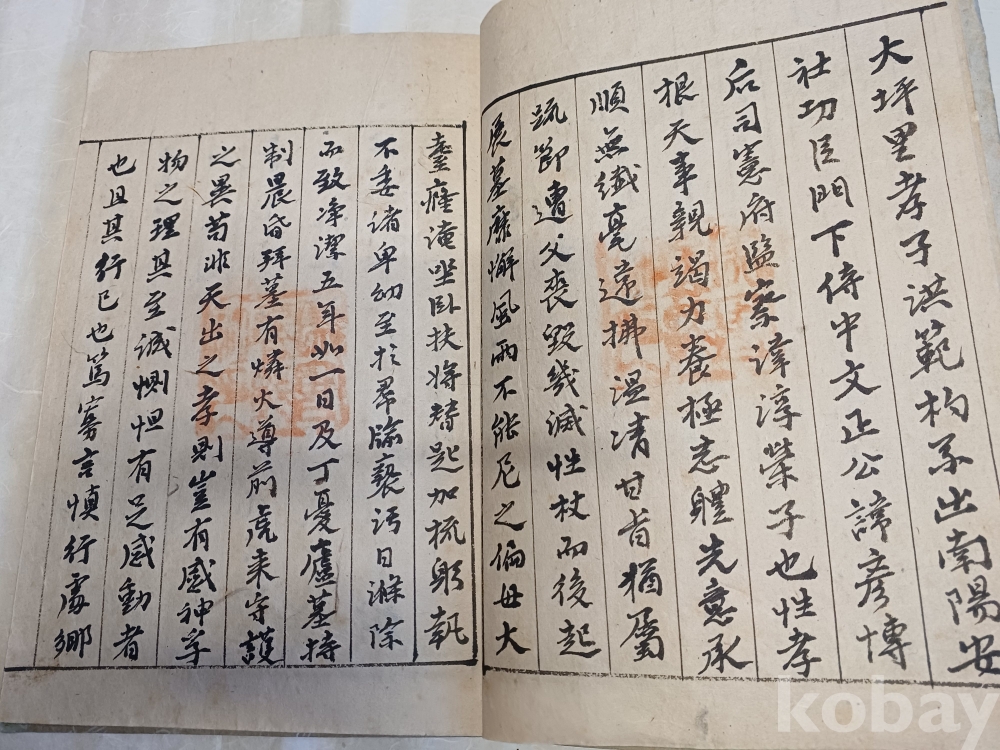 大坪里孝子洪範杓系出南陽安
社功臣門下侍中文正公諱彦博
后司憲府監察諱淳榮子也性孝
根天事親竭力養極志體先意承
順無纖毫違拂溫凊甘旨猶屬
疏節遭父喪毀幾滅性杖而後起
展墓靡懈風雨不能尼之偏母大
耋癃淹坐臥扶將替起加梳躬執
不委諸卑幼至於羣牏褻汚日滌除
而致淨潔五年如一日及丁憂廬墓持
制晨昏拜墓有燐火導前虎来守護
之異苟非天出之孝則豈有感神孚
物之理其至誠惻怛有足感動者
也且其行己也篤實言愼行處鄉
kobay